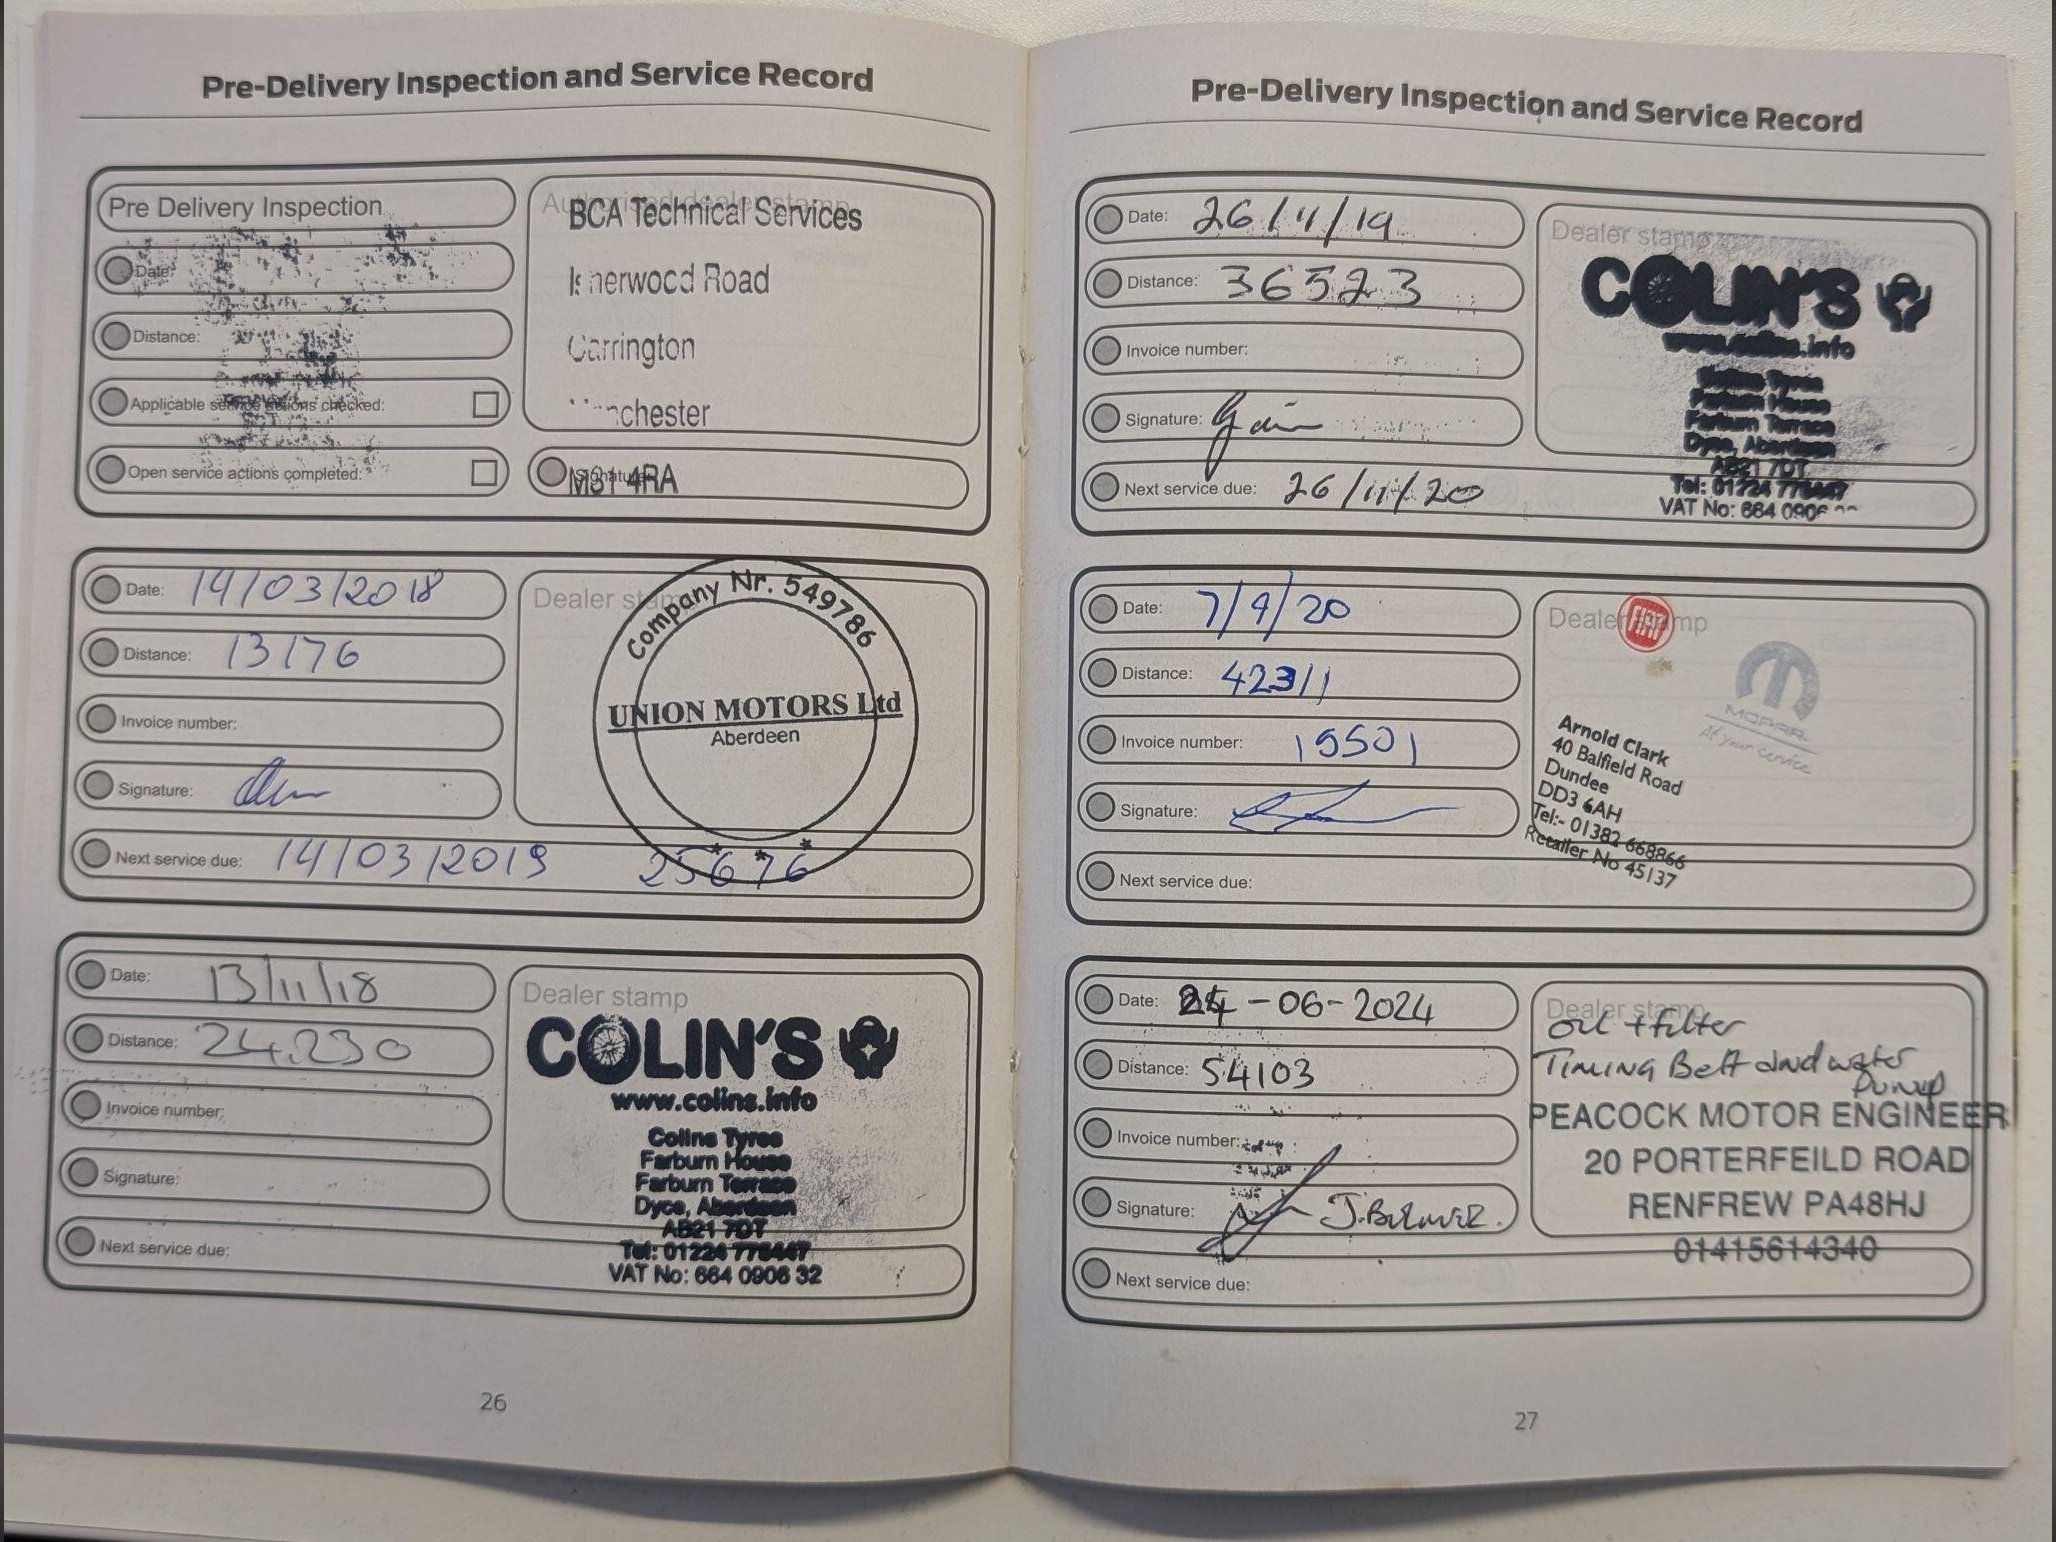 Pre-Delivery Inspection and Service Record
Pre Delivery Inspection
Date:
Distance:
Applicable service actions checked:
Open service actions completed:
Authorised dealer stamp
BCA Technical Services
Isherwood Road
Carrington
Manchester
Signature:
M31 4RA
Date: 14/03/2018
Distance: 13176
Invoice number:
Signature:
Next service due: 14/03/2019 25676
Dealer stamp
Company Nr. 549786
UNION MOTORS Ltd
Aberdeen
* * *
Date: 13/11/18
Distance: 24.230
Invoice number:
Signature:
Next service due:
Dealer stamp
COLIN'S
www.colins.info
Colins Tyres
Farburn House
Farburn Terrace
Dyce, Aberdeen
AB21 7DT
Tel: 01224 775447
VAT No: 664 0906 32
26
Pre-Delivery Inspection and Service Record
Date: 26/11/19
Distance: 36523
Invoice number:
Signature:
Next service due: 26/11/20
Dealer stamp
COLIN'S
www.colins.info
Colins Tyres
Farburn House
Farburn Terrace
Dyce, Aberdeen
AB21 7DT
Tel: 01224 775447
VAT No: 664 0906
Date: 7/9/20
Distance: 42311
Invoice number: 15501
Signature:
Next service due:
Dealer stamp
FIAT
MOPAR
At your service
Arnold Clark
40 Balfield Road
Dundee
DD3 6AH
Tel:- 01382 668866
Retailer No 45137
Date: 24-06-2024
Distance: 54103
Invoice number:
Signature:
Next service due:
Dealer stamp
Oil + filter
Timing Belt and water
Pump
PEACOCK MOTOR ENGINEER
20 PORTERFEILD ROAD
RENFREW PA48HJ
01415614340
27